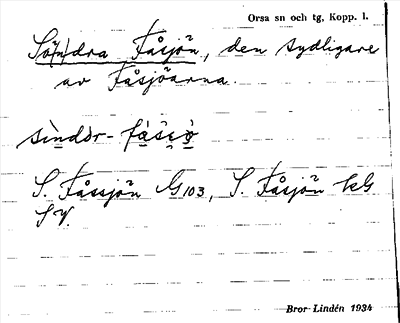 Orsa sn och tg, Kopp. l.
Sö(n)dra Fåsjön, den sydligare
av Fåsjöarna.
S. Fåssjön G103, S. Fåsjön kG
Bror Lindén 1934